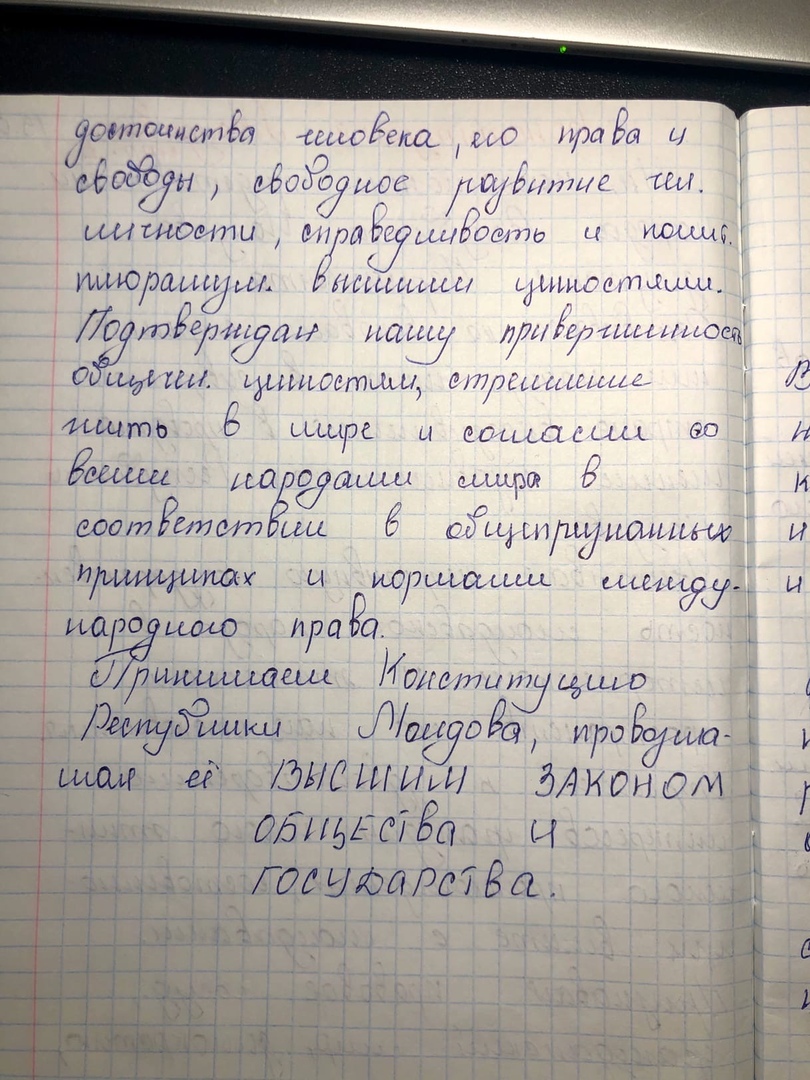 достоинства человека, его права и
свободы, свободное развитие чел.
личности, справедливость и полит.
плюрализм. высшими ценностями.
Подтверждая нашу приверженность
общечел. ценностям, стремление
жить в мире и согласии со
всеми народами мира в
соответствии в общепризнанных
принципах и нормами между-
народного права.
Принимаем Конституцию
Республики Молдова, провозгла-
шая её ВЫСШИМ ЗАКОНОМ
ОБЩЕСТВА И
ГОСУДАРСТВА.